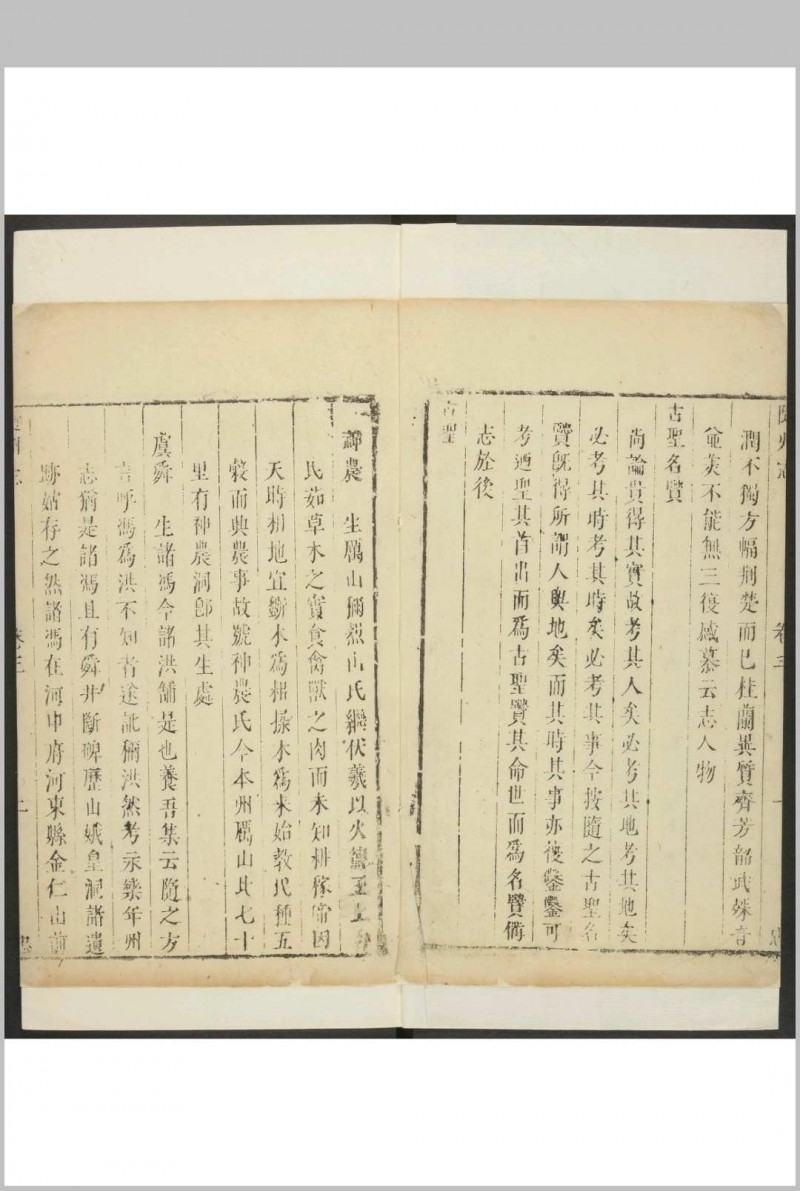 隨州志 卷三 一 忠
潤不獨方幅荆楚而已桂蘭異質齊芳韶武殊音
並美不能無三復緘慕云志人物
古聖名賢
尚論貴得其實故考其人矣必考其地考其地矣
必考其時考其時矣必考其事今按隨之古聖名
賢旣得所謂人與地矣而其時其事亦後鑿鑿可
考迺聖其首出而爲古聖賢其命世而爲名賢備
志於後
古聖
神農 生厲山稱烈山氏繼伏羲以火德王上
民茹草木之實食禽獸之肉而未知耕稼帝因
天時相地宜斲木爲耜揉木爲耒始教民種五
榖而興農事故號神農氏今本州厲山北七十
里有神農洞卽其生處
虞舜 生諸馮今諸洪舖是也養吾集云隨之方
言呼馮爲洪不知者遂訛稱洪然考示樂年州
志猶是諸馮且有舜井斷碑歷山娥皇洞諸遺
跡姑存之然諸馮在河中府河東縣金仁山前
隨州志 卷三 二 忠